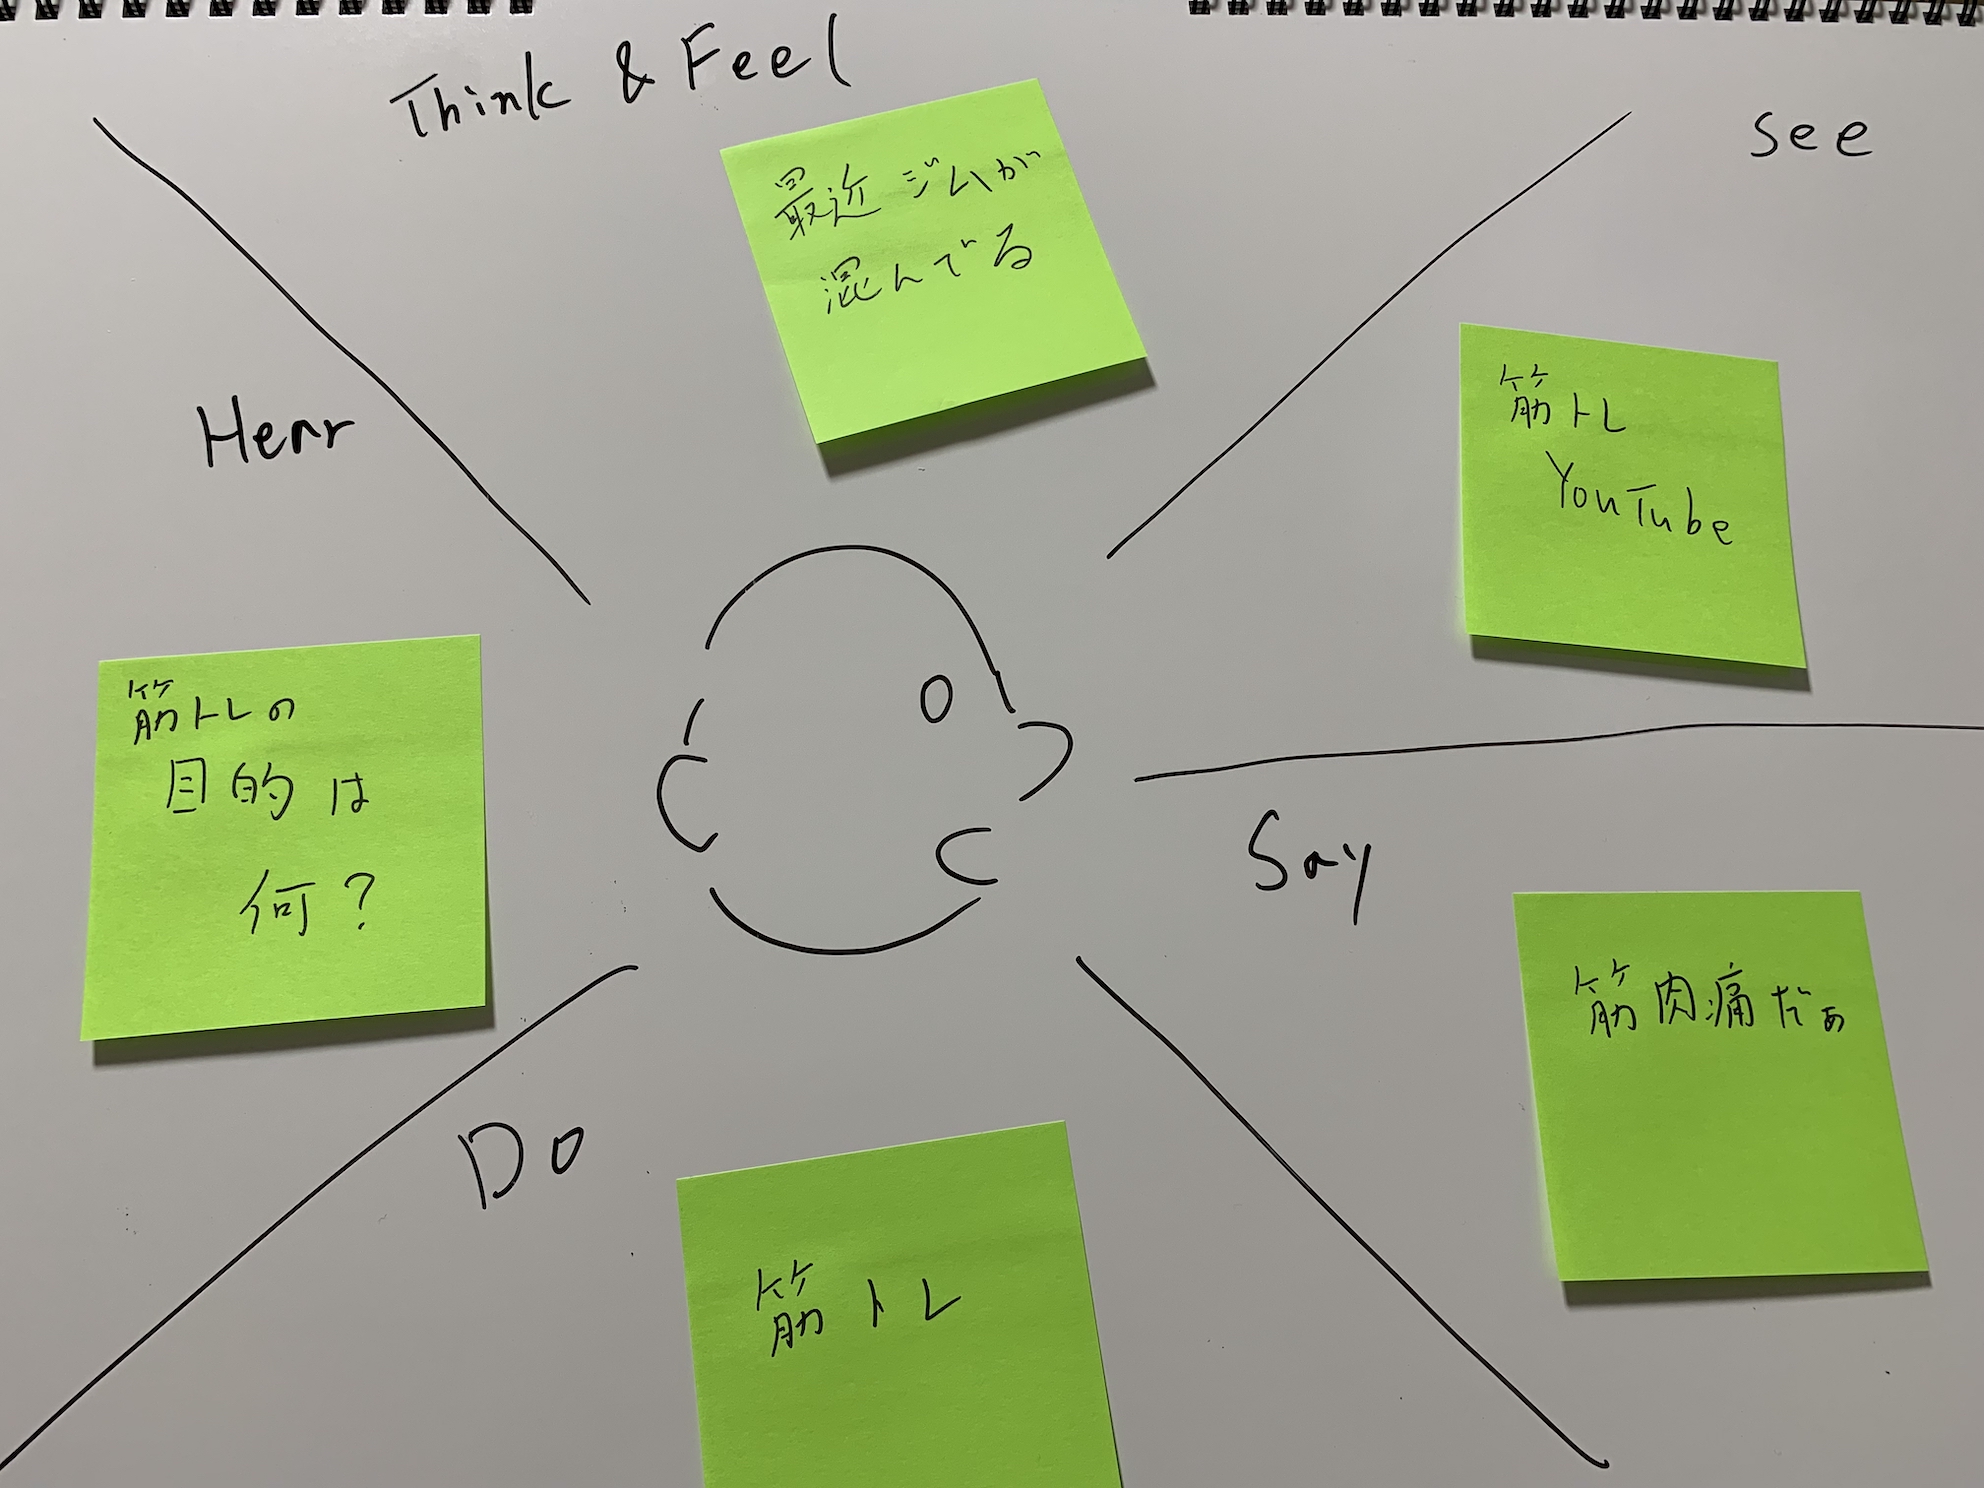 Think & Feel
最近ジムが
混んでる
See
筋トレ
YouTube
Hear
筋トレの
目的は
何？
Say
筋肉痛だぁ
Do
筋トレ